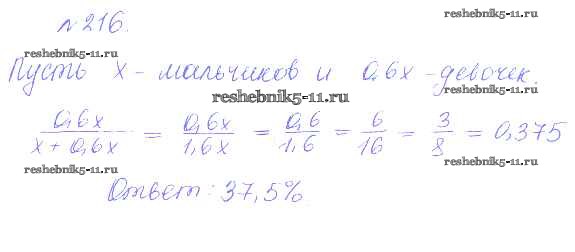 №216.
reshebnik5-11.ru
reshebnik5-11.ru
Пусть x - мальчиков и 0,6x - девочек.
reshebnik5-11.ru
reshebnik5-11.ru
0,6x / x + 0,6x = 0,6x / 1,6x = 0,6 / 1,6 = 6 / 16 = 3 / 8 = 0,375
reshebnik5-11.ru
reshebnik5-11.ru
Ответ: 37,5%.
reshebnik5-11.ru